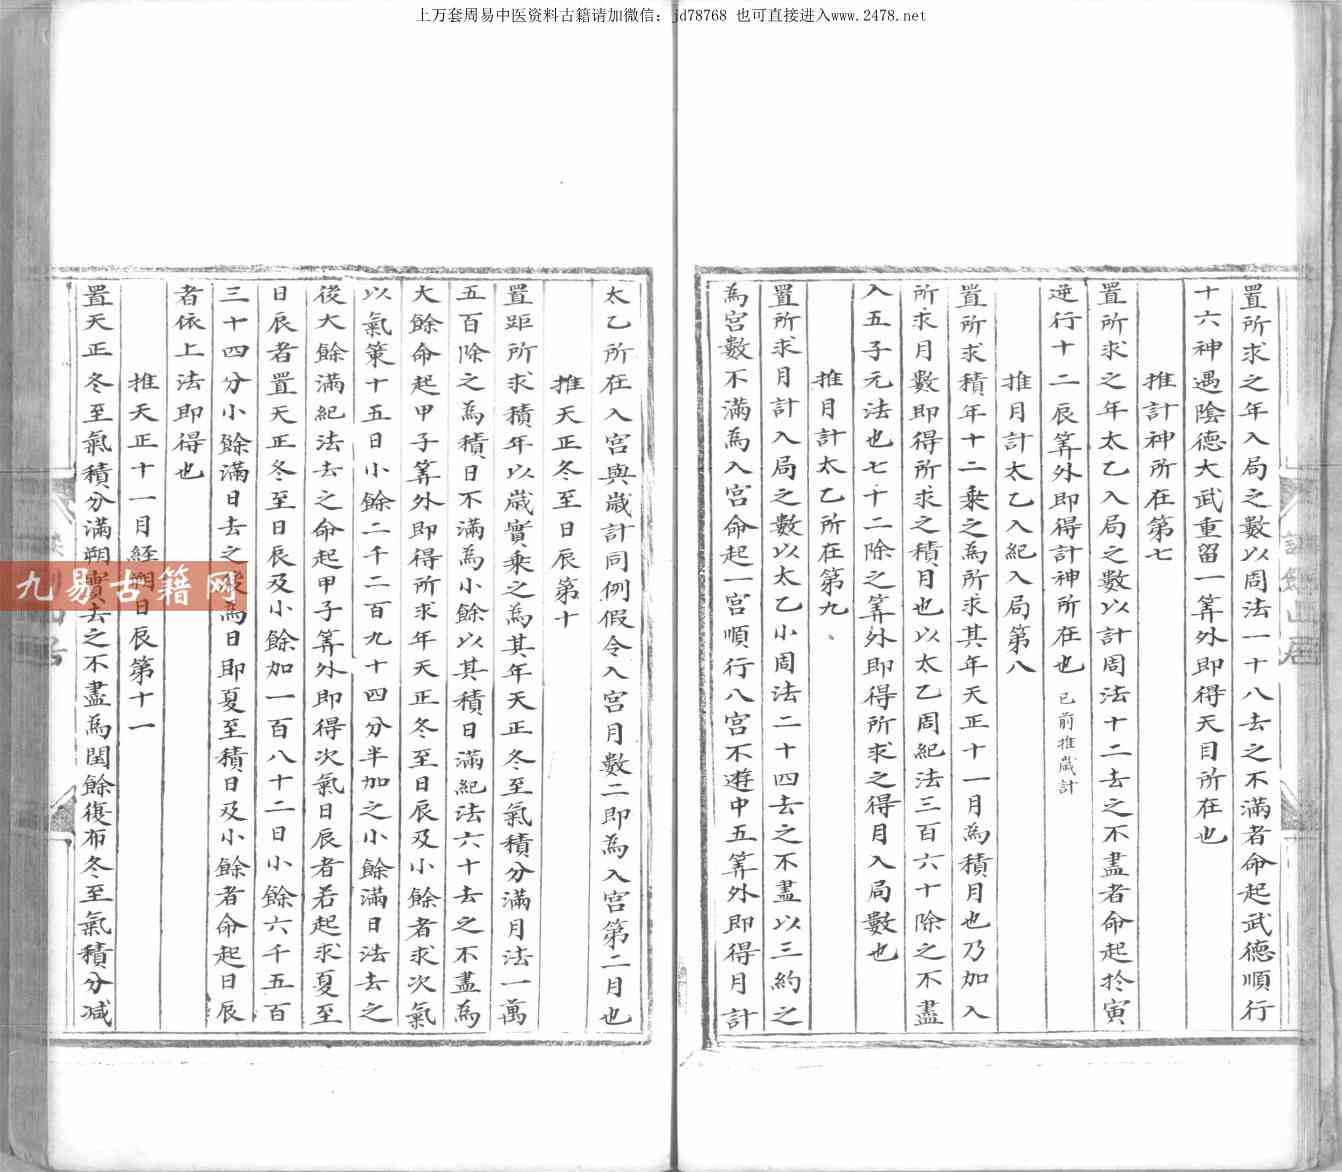 上万套周易中医资料古籍请加微信：jd78768 也可直接进入www.2478.net
置所求之年入局之數以周法一十八去之不滿者命起武德順行
十六神遇陰德大武重留一筭外即得天目所在也
推計神所在第七
置所求之年太乙入局之數以計周法十二去之不盡者命起扵寅
逆行十二辰筭外即得計神所在也 已前推歲計
推月計太乙入紀入局第八
置所求積年十二乘之為所求其年天正十一月為積月也乃加入
所求月數即得所求之積月也以太乙周紀法三百六十除之不盡
入五子元法也七十二除之筭外即得所求之得月入局數也
推月計太乙所在第九、
置所求月計入局之數以太乙小周法二十四去之不盡以三約之
為宮數不滿為入宮命起一宮順行八宮不遊中五筭外即得月計
太乙所在入宮與歲計同例假令入宮月數二即為入宮第二月也
推天正冬至日辰第十
置距所求積年以歲實乘之為其年天正冬至氣積分滿月法一萬
五百除之為積日不滿為小餘以其積日滿紀法六十去之不盡為
大餘命起甲子筭外即得所求年天正冬至日辰及小餘者求次氣
以氣策十五日小餘二千二百九十四分半加之小餘滿日法去之
後大餘滿紀法去之命起甲子筭外即得次氣日辰者若起求夏至
日辰者置天正冬至日辰及小餘加一百八十二日小餘六千五百
三十四分小餘滿日去之為日即夏至積日及小餘者命起日辰
者依上法即得也
推天正十一月経朔日辰第十一
置天正冬至氣積分滿朔實去之不盡為閏餘復布冬至氣積分減
九易古籍网